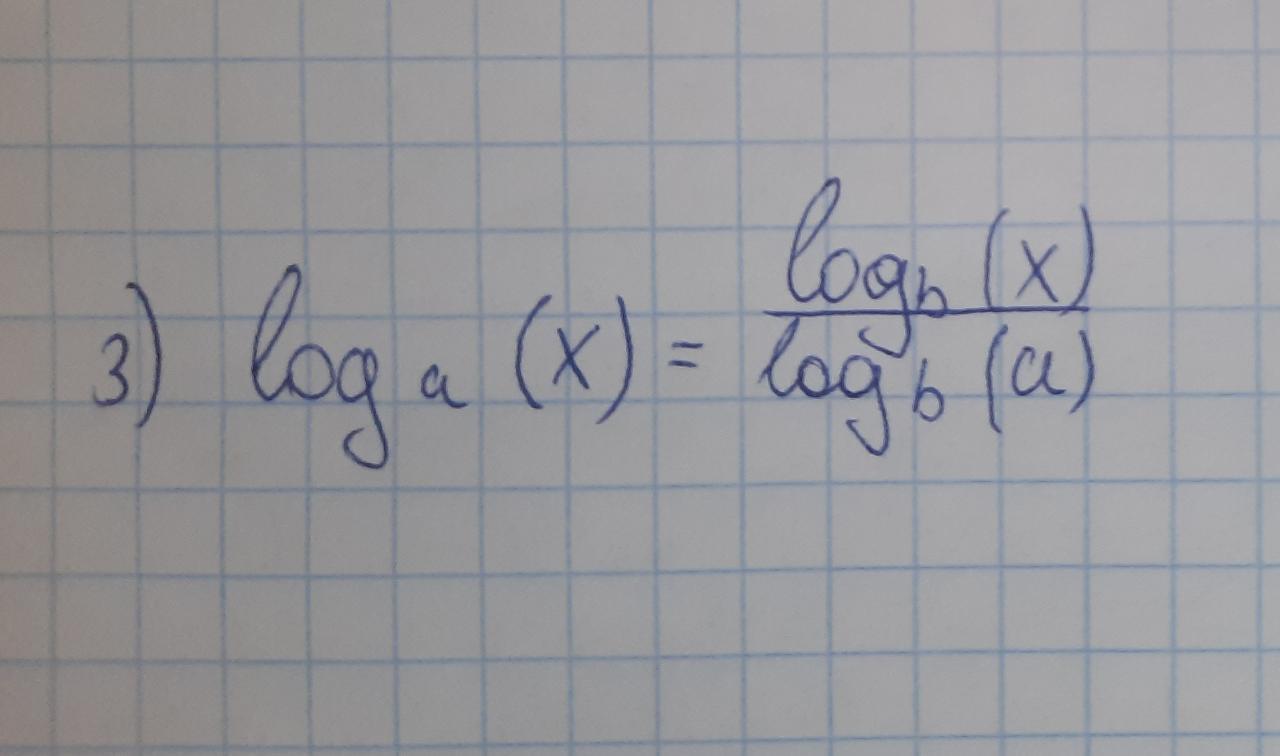 3) log_a (x) = \frac{log_b (x)}{log_b (a)}